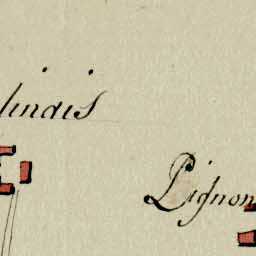 linais
Lignon